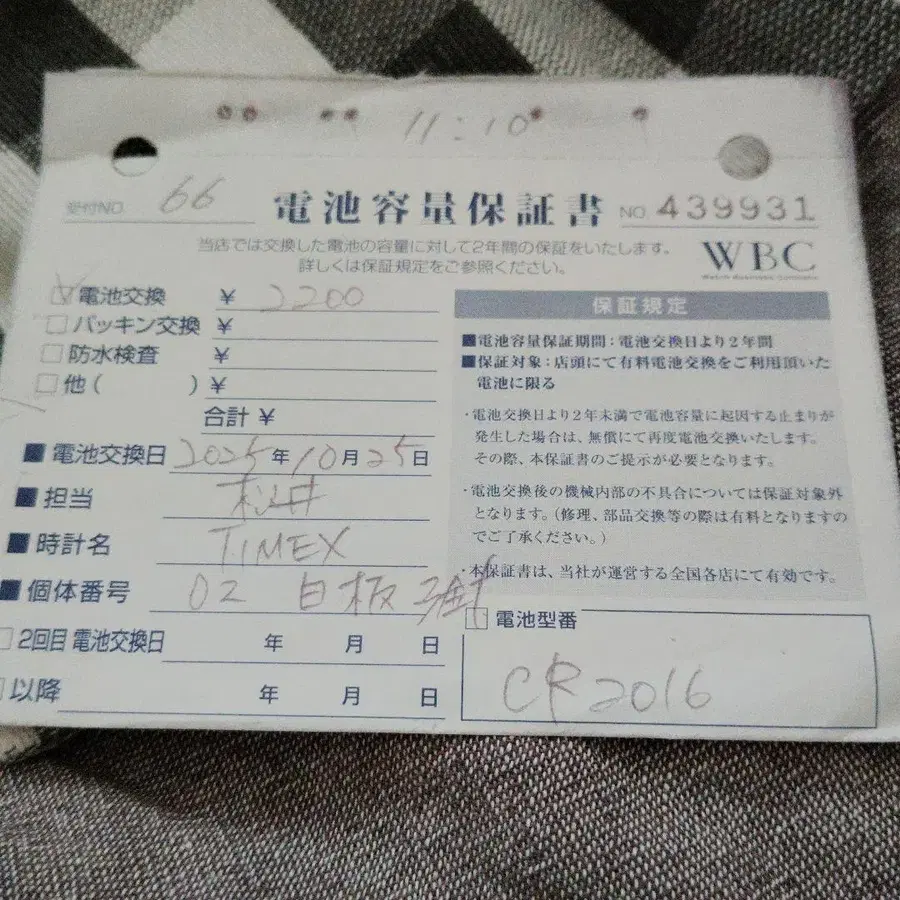 11:10
受付NO. 66
電池容量保証書
NO. 439931
当店では交換した電池の容量に対して2年間の保証をいたします。
詳しくは保証規定をご参照ください。
WBC
電池交換 ¥ 2200
パッキン交換 ¥
防水検査 ¥
他( ) ¥
合計 ¥
■電池交換日 2025年10月25日
■担当 松井
■時計名 TIMEX
■個体番号 02 白板
2回目 電池交換日 年 月 日
以降 年 月 日
保証規定
■電池容量保証期間:電池交換日より2年間
■保証対象:店頭にて有料電池交換をご利用頂いた
電池に限る
・電池交換日より2年未満で電池容量に起因する止まりが
発生した場合は、無償にて再度電池交換いたします。
その際、本保証書のご提示が必要となります。
・電池交換後の機械内部の不具合については保証対象外
となります。(修理、部品交換等の際は有料となりますの
でご了承ください。)
・本保証書は、当社が運営する全国各店にて有効です。
電池型番
CR2016